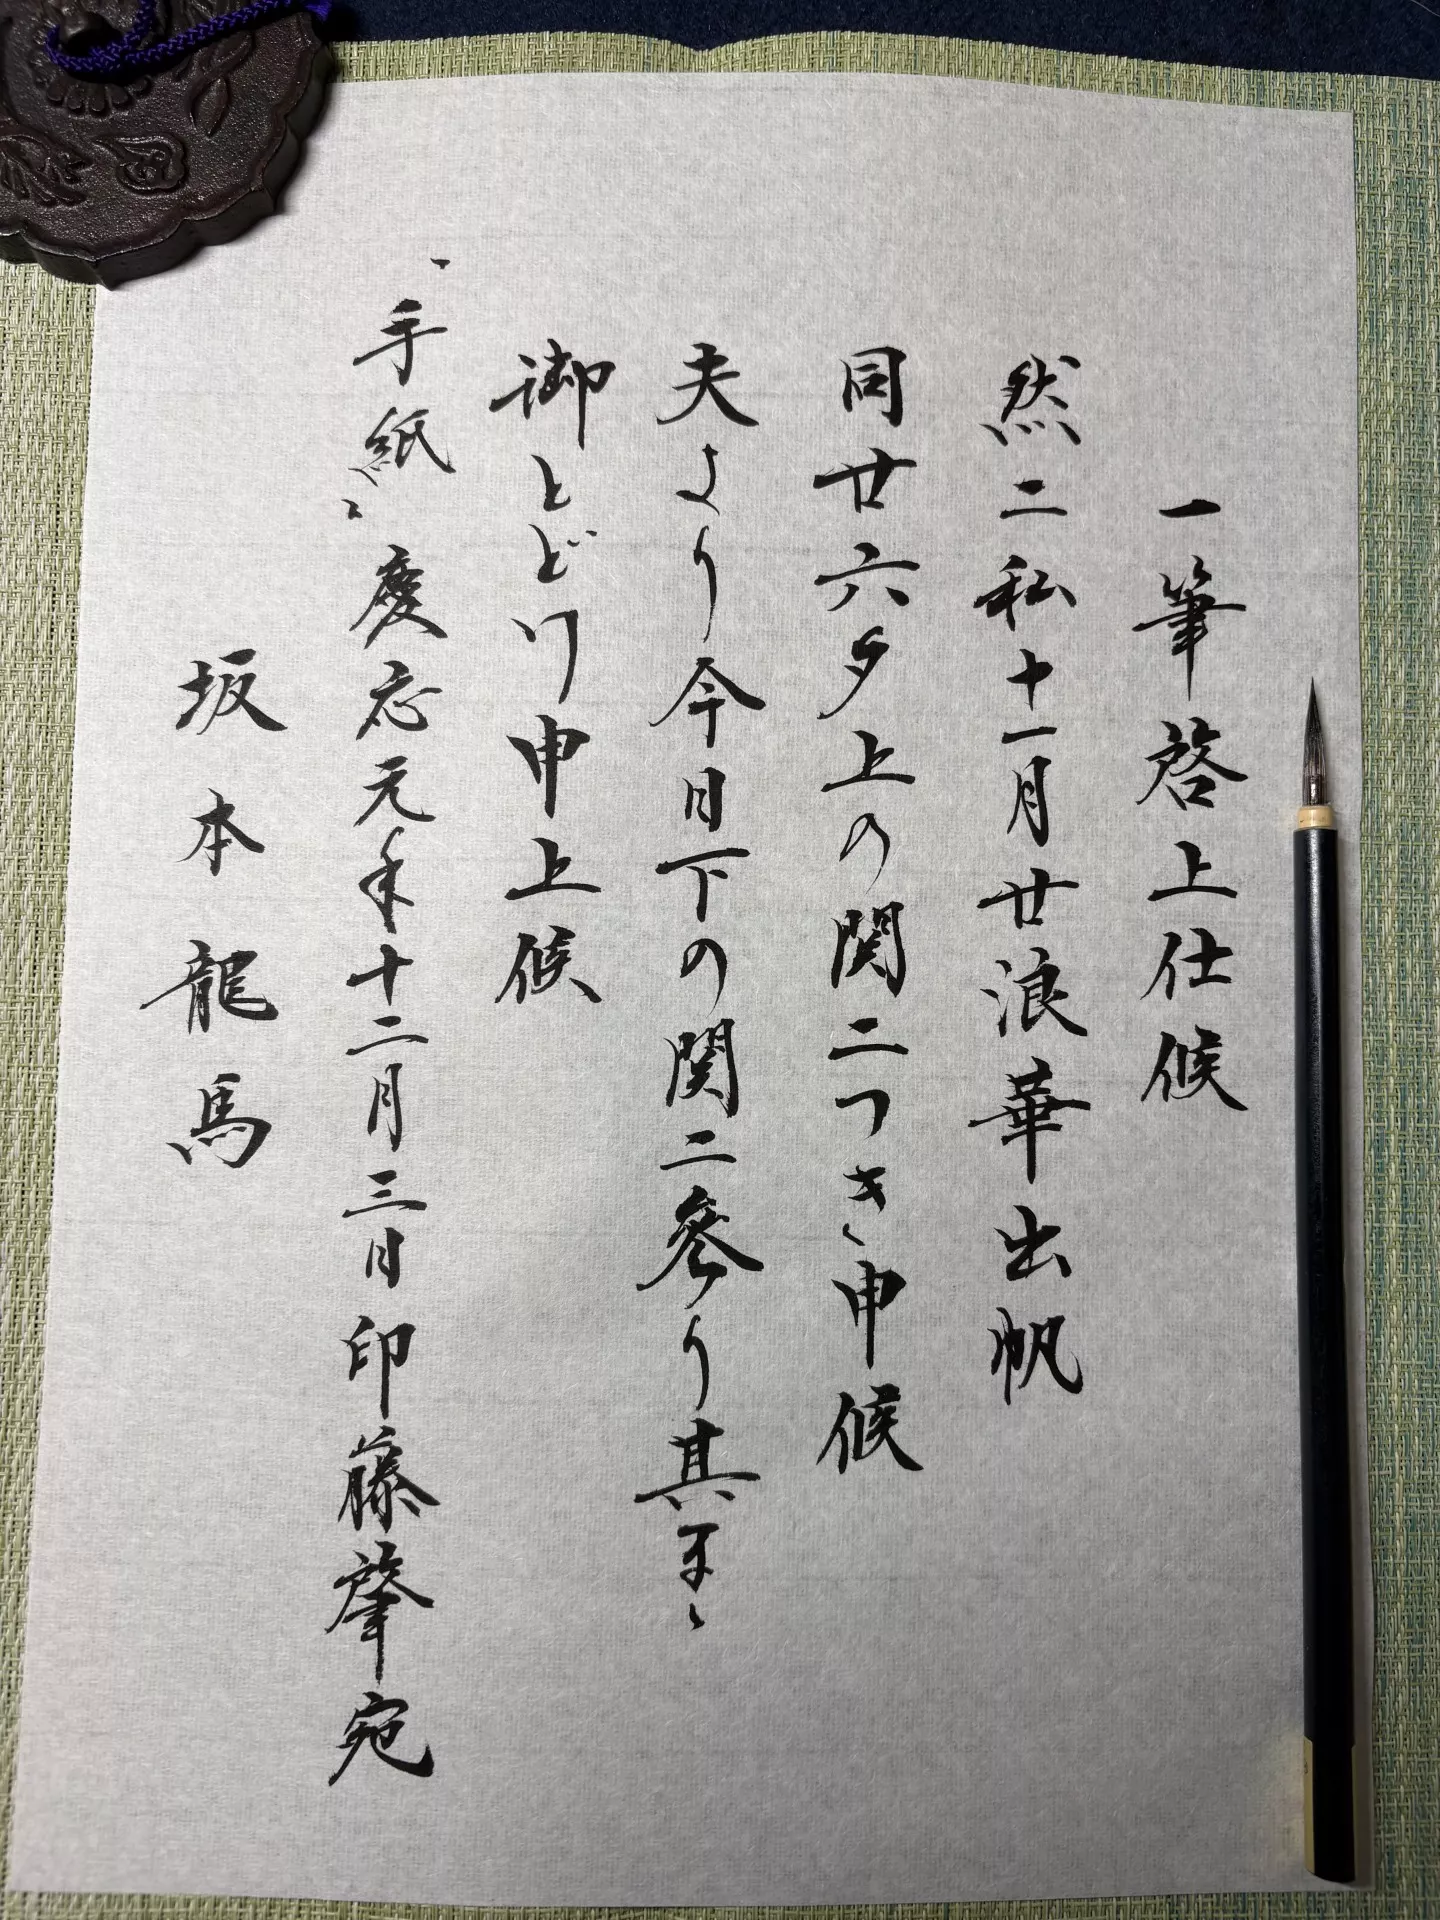 一筆啓上仕候
然ニ私十一月廿浪華出帆
同廿六夕上の関ニつき申候
夫より今日下の関ニ参り其まゝ
御とどけ申上候
手紙 慶応元年十二月三日印藤肇宛
坂本龍馬